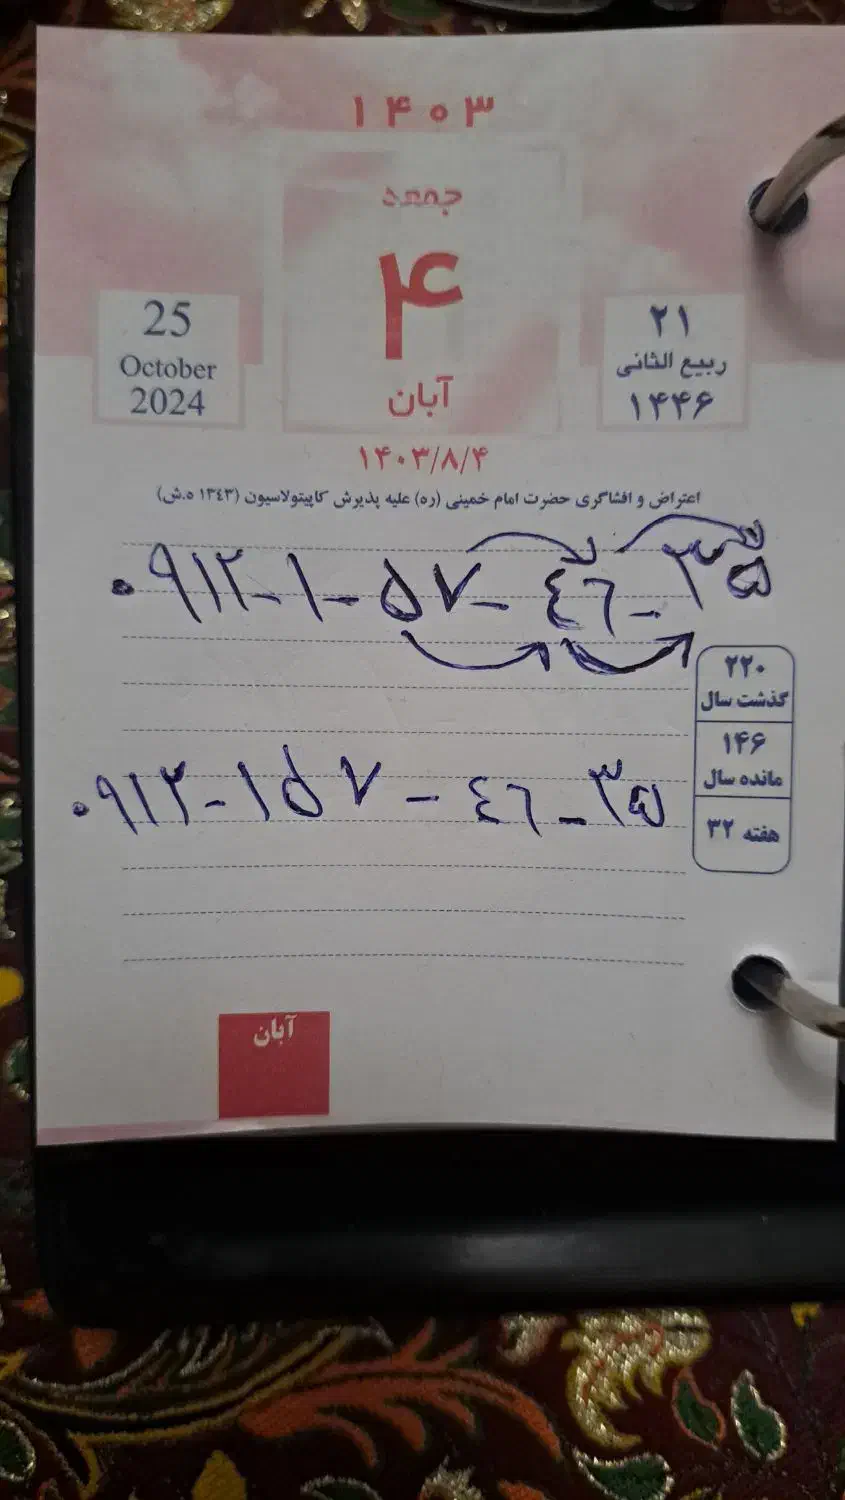 ۱۴۰۳
جمعه
۴
آبان
۱۴۰۳/۸/۴
25
October
2024
۲۱
ربیع الثانی
۱۴۴۶
اعتراض و افشاگری حضرت امام خمینی (ره) علیه پذیرش کاپیتولاسیون (۱۳٤۳ ه.ش)
۰۹۱۲-۱-۵۷-٤٦-۳۵
۰۹۱۲-۱۵۷-٤٦-۳۵
۲۲۰
گذشت سال
۱۴۶
مانده سال
هفته ۳۲
آبان